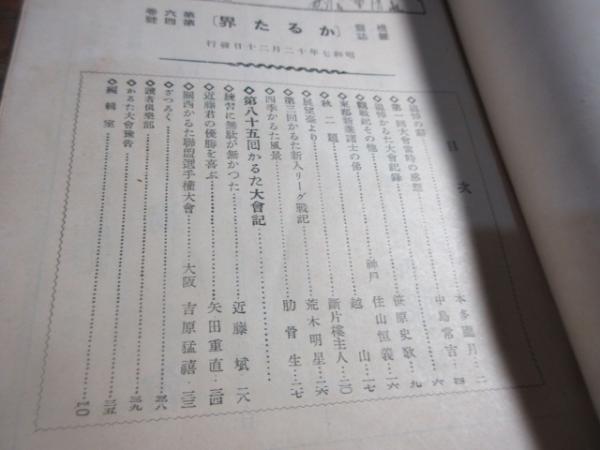 機關雜誌 〔かるた界〕 第六卷 第四號
昭和七年十二月二十日發行
目次
追悼の辭……本多龗月…二
第一回大會當時の思想……中島常吉…四
追悼かるた大會記錄……六
觀戰記その他……笹原史歌…九
東都新進諸士の俤……神戸 住山恒義…一六
秋二題……越山…一七
展望臺より……斷片樓主人…二〇
第三回かるた新人リーグ戰記……荒木明星…二六
四季かるた風景……肋骨生…二七
◇第八十五回かるた大會記……
◇練習に無駄が無かつた……近藤斌…二八
◇近藤君の優勝を喜ぶ……矢田重直…三四
◇關西かるた聯盟選手權大會……大阪 吉原猛禧…三三
◇ざつろく……三八
◇讀者俱樂部……三九
◇かるた大會豫告……三五
◇編輯室……四〇